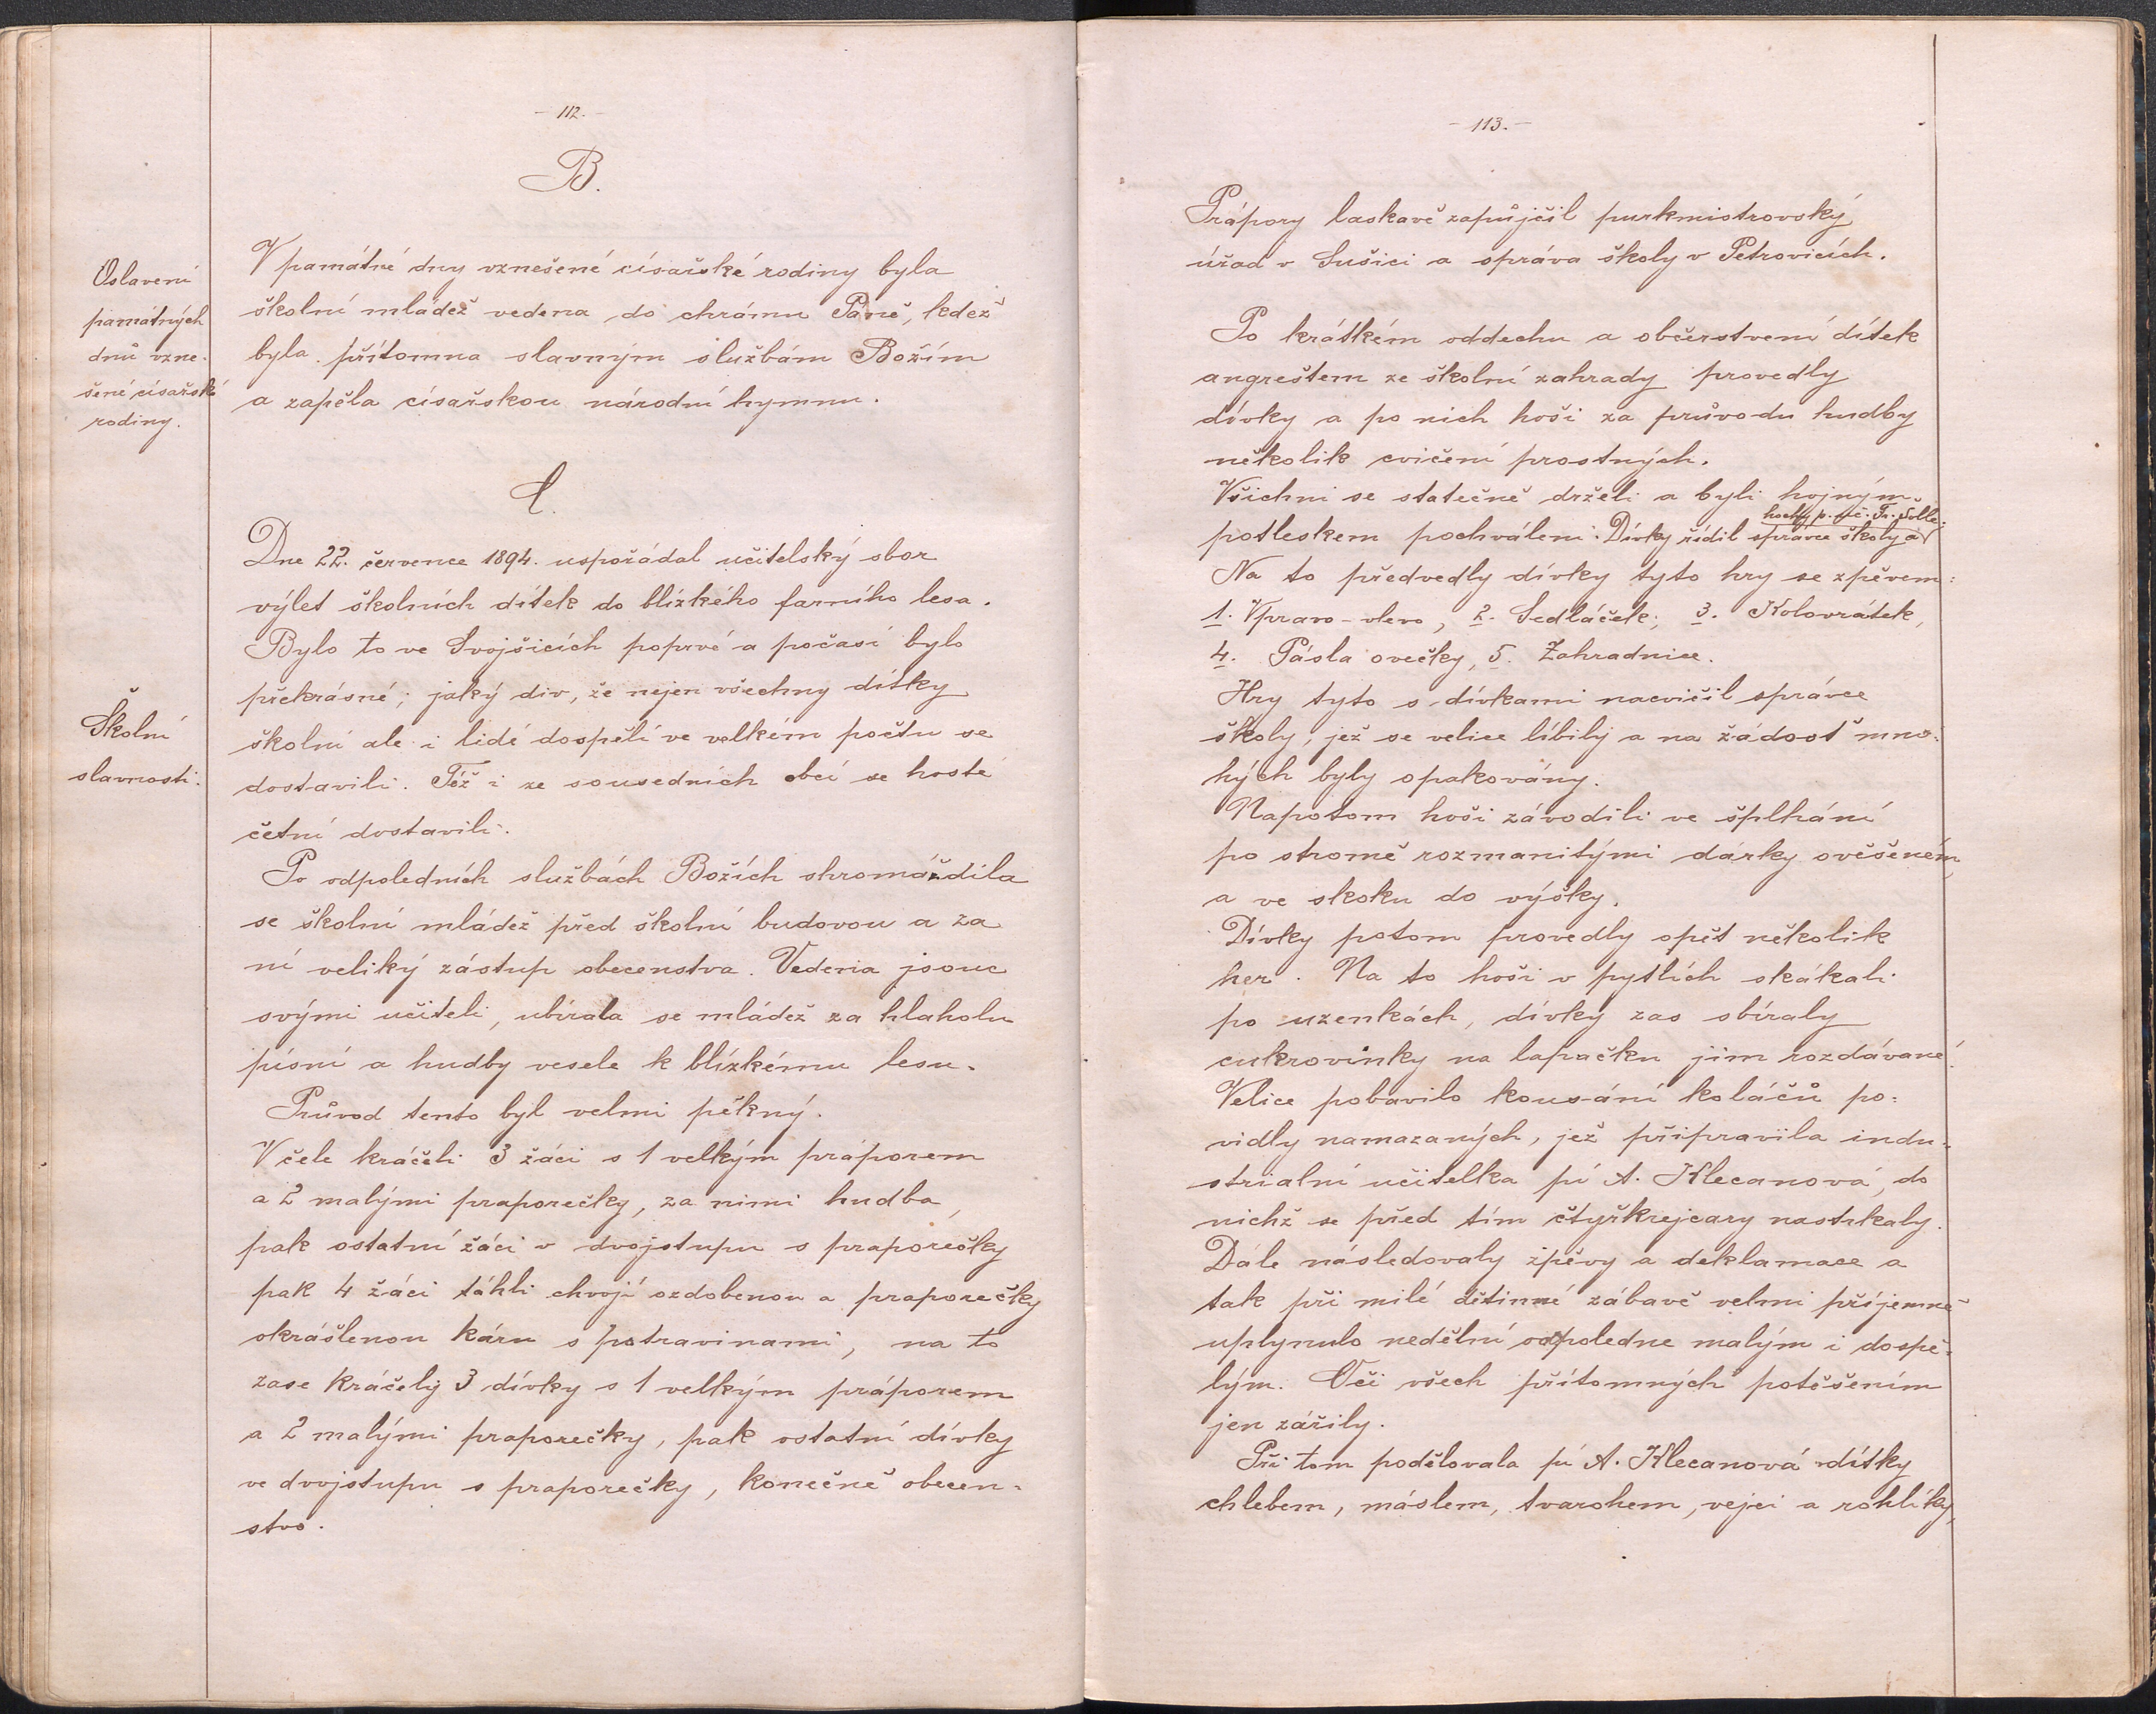 - 112. -
B.
Oslavení
památných
dnů vzne-
šené císařské
rodiny.
V památné dny vznešené císařské rodiny byla
školní mládež vedena do chrámu Páně, kdež
byla přítomna slavným službám Božím
a zapěla císařskou národní hymnu.
C.
Školní
slavnosti.
Dne 22. července 1894. uspořádal učitelský sbor
výlet školních dítek do blízkého farního lesa.
Bylo to ve Svojšicích poprvé a počasí bylo
překrásné; jaký div, že nejen všechny dítky
školní ale i lidé dospělí ve velkém počtu se
dostavili. Též i ze sousedních obcí se hosté
četní dostavili.
Po odpoledních službách Božích shromáždila
se školní mládež před školní budovou a za
ní veliký zástup obecenstva. Vedena jsouc
svými učiteli, ubírala se mládež za hlaholu
písní a hudby vesele k blízkému lesu.
Průvod tento byl velmi pěkný.
V čele kráčeli 3 žáci s 1 velkým práporem
a 2 malými praporečky, za nimi hudba,
pak ostatní žáci v dvojstupu s praporečky
pak 4 žáci táhli chvojí ozdobenou a praporečky
okrášlenou káru s potravinami, na to
zase kráčely 3 dívky s 1 velkým práporem
a 2 malými praporečky, pak ostatní dívky
ve dvojstupu s praporečky, konečně obecen-
stvo.
- 113. -
Prápory laskavě zapůjčil purkmistrovský
úřad v Sušici a správa školy v Petrovicích.
Po krátkém oddechu a občerstvení dítek
angreštem ze školní zahrady provedly
dívky a po nich hoši za průvodu hudby
několik cvičení prostných.
Všichni se statečně drželi a byli hojným
hochy p. uč. Fr.
potleskem pochváleni. Dívky řídil správce školy a
Na to předvedly dívky tyto hry se zpěvem:
1. Vpravo-vlevo, 2. Sedláček; 3. Kolovrátek,
4. Pásla ovečky, 5. Zahradnice.
Hry tyto s dívkami nacvičil správce
školy; jež se velice líbily a na žádosť mno-
hých byly opakovány.
Napotom hoši závodili ve šplhání
po stromě rozmanitými dárky ověšeném,
a ve skoku do výšky.
Dívky potom provedly opět několik
her. Na to hoši v pytlích skákali
po uzenkách, dívky zas sbíraly
cukrovinky na lapačku jim rozdávané.
Velice pobavilo kousání koláčů po-
vidly namazaných, jež připravila indu-
strialní učitelka pí A. Klecanová, do
nichž se před tím čtyřkrejcary nastrkaly.
Dále následovaly zpěvy a deklamace a
tak při milé dětinné zábavě velmi příjemně
uplynulo nedělní odpoledne malým i dospě-
lým. Oči všech přítomných potěšením
jen zářily.
Při tom podělovala pí A. Klecanová dítky
chlebem, máslem, tvarohem, vejci a rohlíky,